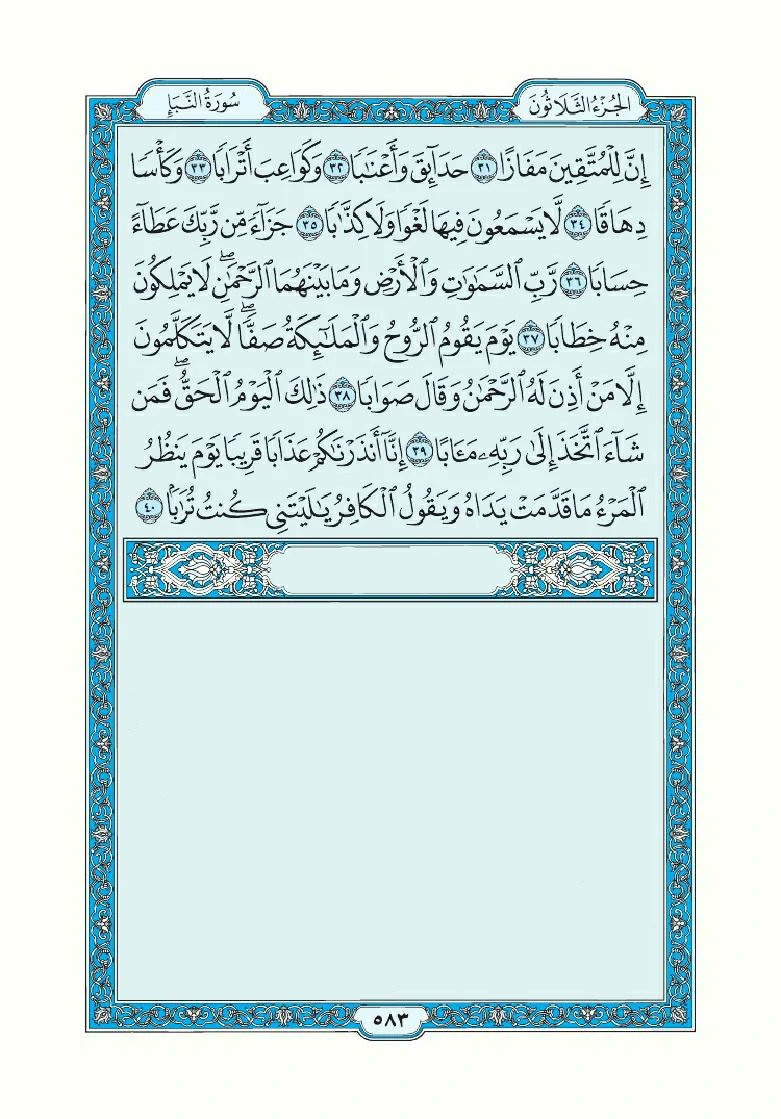 الجُزْءُ الثَّلَاثُونَ
سُورَةُ النَّبَإِ
إِنَّ لِلْمُتَّقِينَ مَفَازًا ٣١ حَدَآئِقَ وَأَعْنَٰبًا ٣٢ وَكَوَاعِبَ أَتْرَابًا ٣٣ وَكَأْسًا
دِهَاقًا ٣٤ لَّا يَسْمَعُونَ فِيهَا لَغْوًا وَلَا كِذَّٰبًا ٣٥ جَزَآءً مِّن رَّبِّكَ عَطَآءً
حِسَابًا ٣٦ رَّبِّ ٱلسَّمَٰوَٰتِ وَٱلْأَرْضِ وَمَا بَيْنَهُمَا ٱلرَّحْمَٰنِۖ لَا يَمْلِكُونَ
مِنْهُ خِطَابًا ٣٧ يَوْمَ يَقُومُ ٱلرُّوحُ وَٱلْمَلَٰٓئِكَةُ صَفًّاۖ لَّا يَتَكَلَّمُونَ
إِلَّا مَنْ أَذِنَ لَهُ ٱلرَّحْمَٰنُ وَقَالَ صَوَابًا ٣٨ ذَٰلِكَ ٱلْيَوْمُ ٱلْحَقُّۖ فَمَن
شَآءَ ٱتَّخَذَ إِلَىٰ رَبِّهِۦ مَـَٔابًا ٣٩ إِنَّآ أَنذَرْنَٰكُمْ عَذَابًا قَرِيبًا يَوْمَ يَنظُرُ
ٱلْمَرْءُ مَا قَدَّمَتْ يَدَاهُ وَيَقُولُ ٱلْكَافِرُ يَٰلَيْتَنِى كُنتُ تُرَٰبًۢا ٤٠
٥٨٣